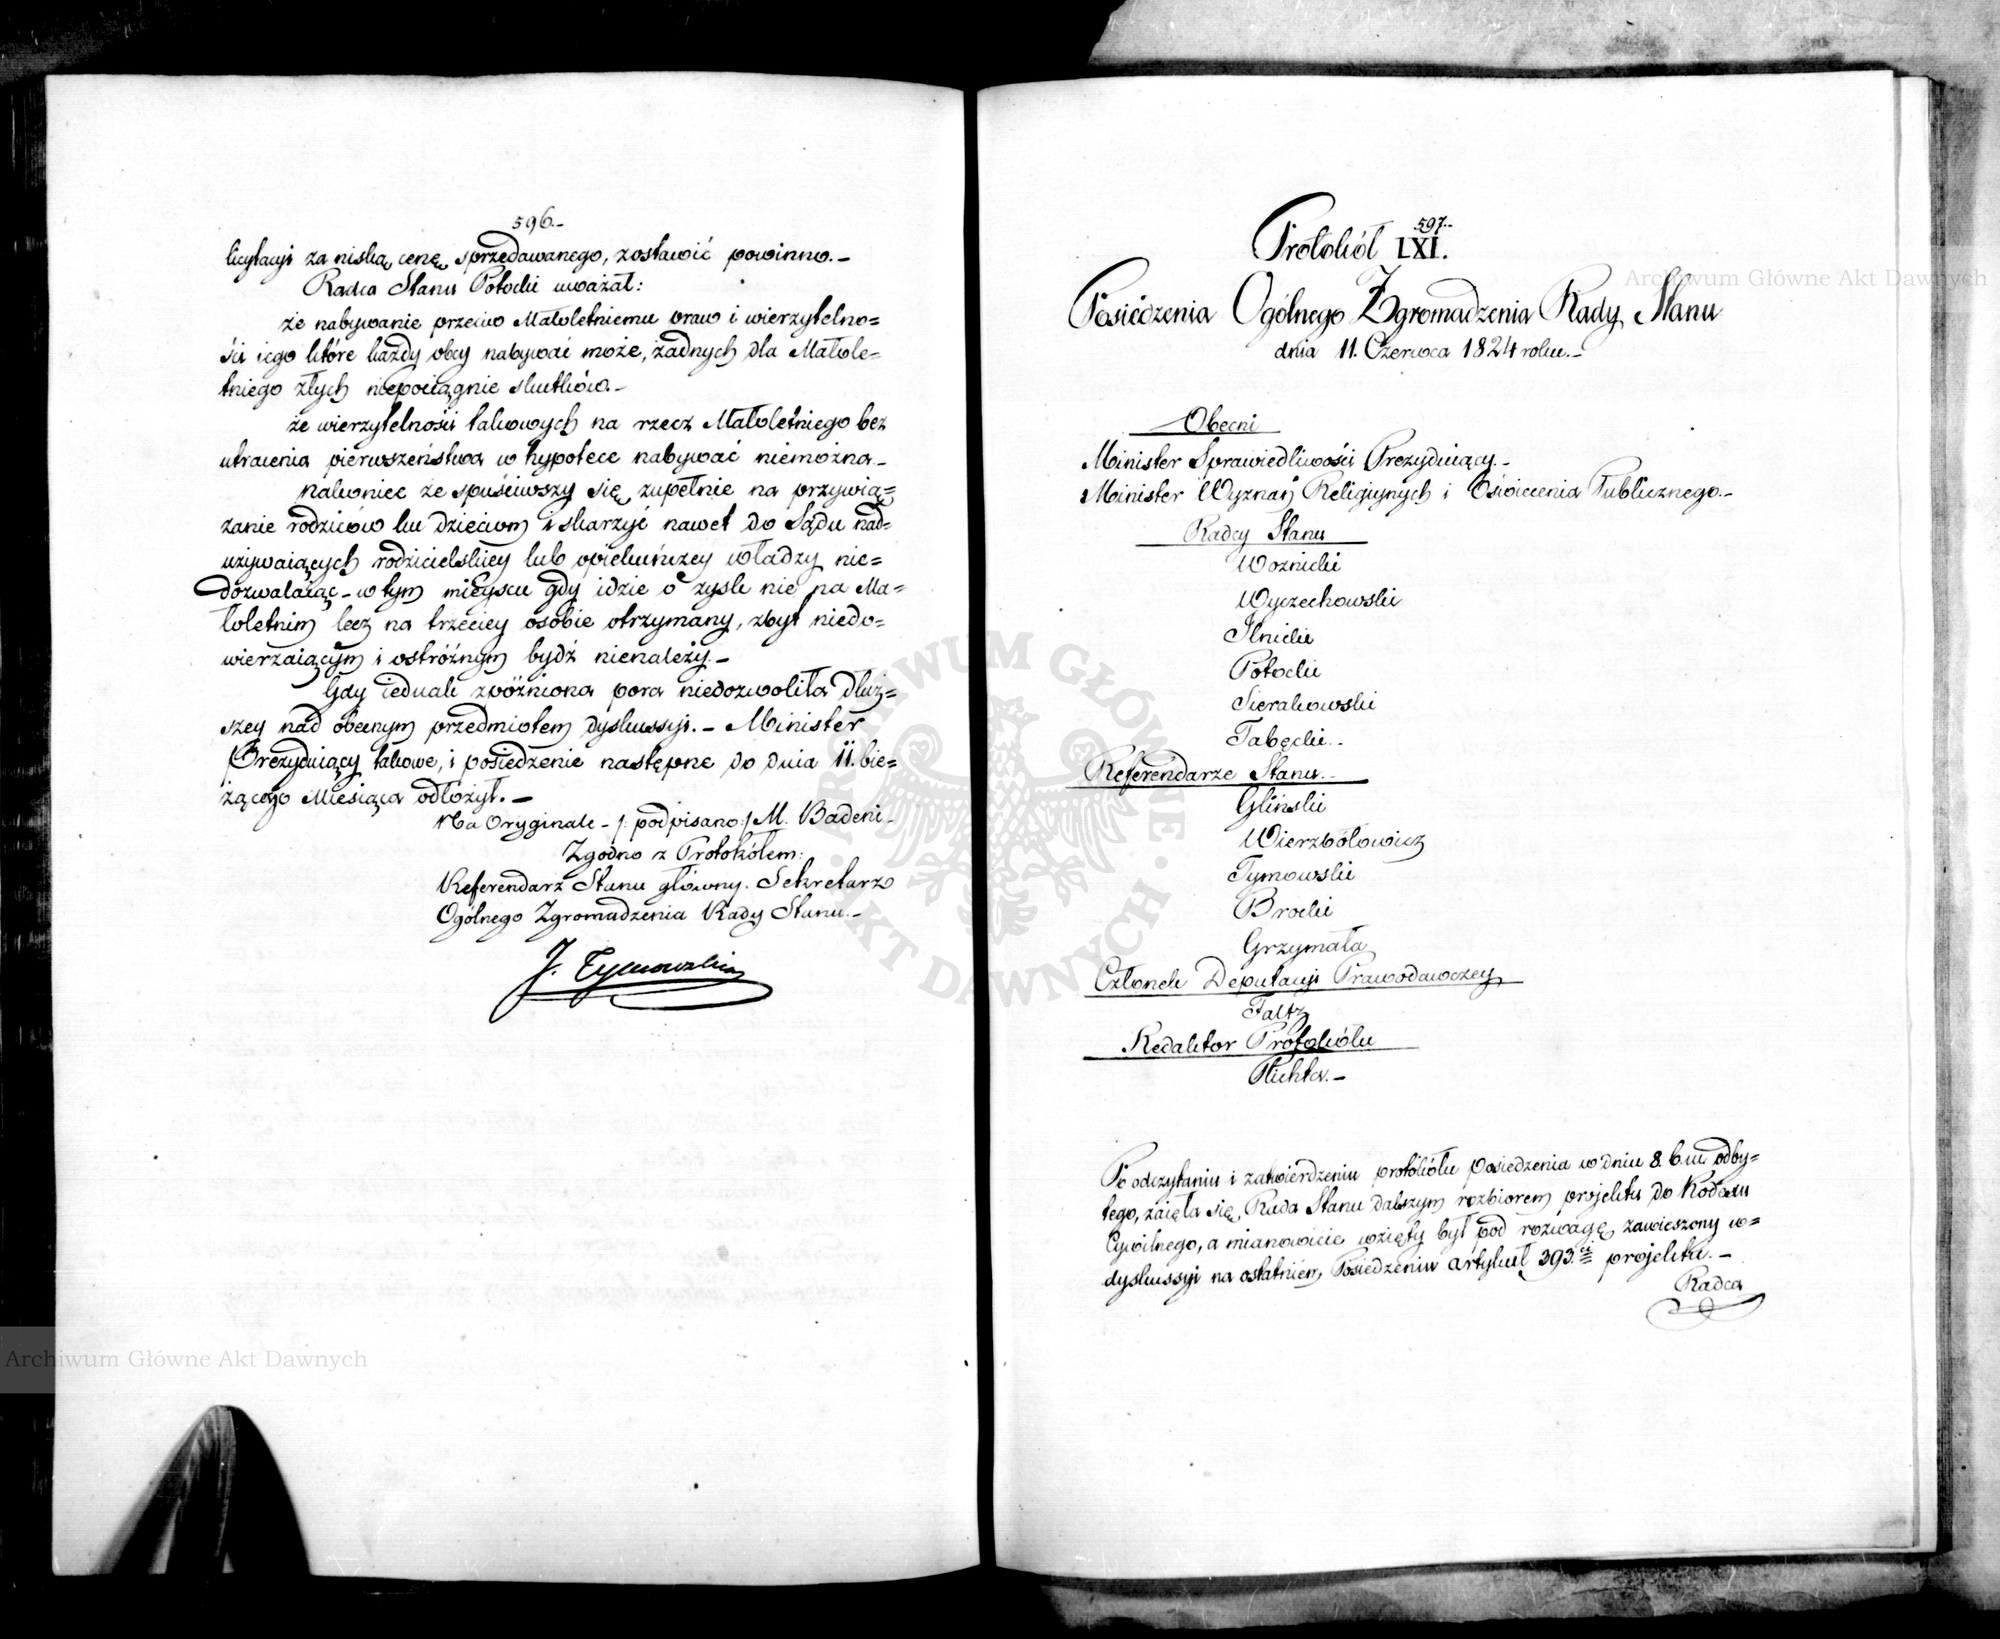 596.-
licytacyi za niską cenę sprzedawanego, zostawić powinno.-
Radca Stanu Potocki uważał:
że nabywanie przeciw Małoletniemu praw i wierzytelno=
ści iego które każdy obcy nabywać może, żadnych dla Małole=
tniego złych niepociągnie skutków.-
że wierzytelności takowych na rzecz Małoletniego bez
utracenia pierwszeństwa w hypotece nabywać niemożna.-
nakoniec że spuściwszy się zupełnie na przywią=
zanie rodziców ku dzieciom i skarżyć nawet do Sądu nad=
używaiących rodzicielskiey lub opiekuńczey władzy nie=
dozwalaiąc - w tym mieyscu gdy idzie o zysk nie na Ma=
łoletnim lecz na trzeciey osobie otrzymany, zbyt niedo=
wierzaiącym i ostróżnym bydź nienależy.-
Gdy iednak zpóźniona pora niedozwoliła dłuż=
szey nad obecnym przedmiotem dyskussyi. - Minister
Prezyduiący takowe, i posiedzenie następne do dnia 11. bie=
żącego Miesiąca odłożył. -
Na Oryginale - /: podpisano:/ M. Badeni.
Zgodno z Protokółem:
Referendarz Stanu główny. Sekretarz
Ogólnego Zgromadzenia Rady Stanu.-
J. Tymowski
597.-
Protokół LXI.
Posiedzenia Ogólnego Zgromadzenia Rady Stanu
dnia 11. Czerwca 1824 roku.-
Obecni
Minister Sprawiedliwości Prezyduiący.-
Minister Wyznań Religiynych i Oświecenia Publicznego.-
Radcy Stanu
Woznicki
Wyczechowski
Ilnicki
Potocki
Sierakowski
Tabęcki.-
Referendarze Stanu.-
Gliński
Wierzbołowicz
Tymowski
Brocki
Grzymała
Członek Deputacyi Prawodawczey
Faltz
Redaktor Protokółu
Plichta.-
Po odczytaniu i zatwierdzeniu protokółu posiedzenia w dniu 8. b.m. odby=
tego, zaięła się Rada Stanu dalszym rozbiorem projektu do Kodexu
Cywilnego, a mianowicie wzięty był pod rozwagę zawieszony w=
dyskussyi na ostatniem Posiedzeniu artykuł 393.ci projektu.-
Radca
Archiwum Główne Akt Dawnych
Archiwum Główne Akt Dawnych
ARCHIWUM GŁÓWNE · AKT DAWNYCH ·